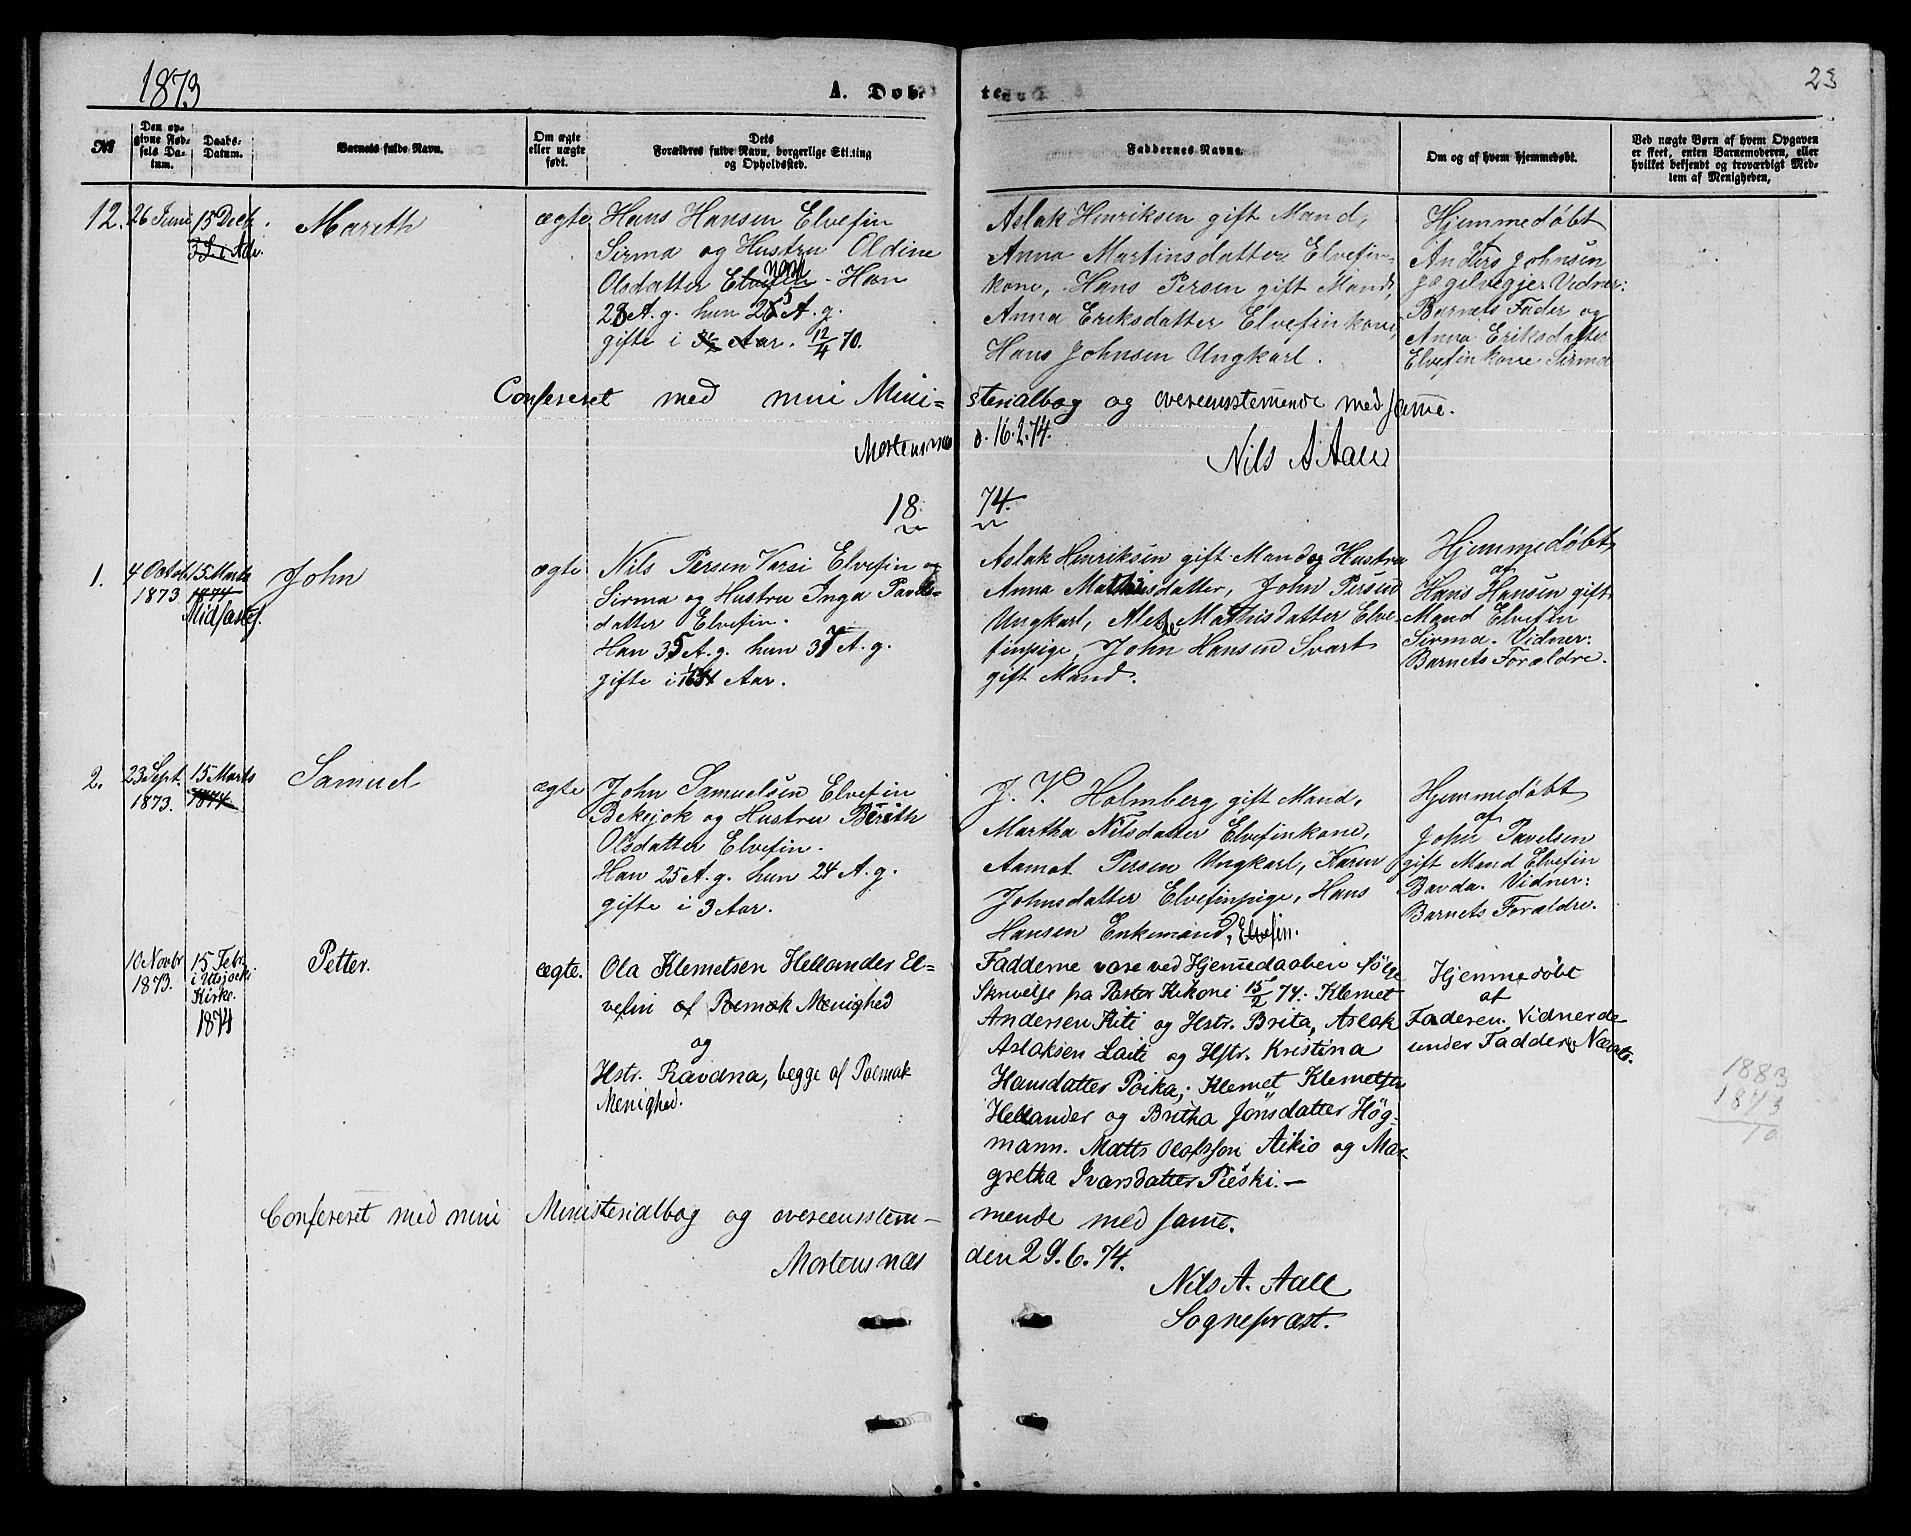 1873
A. Døbte
23
№
Den opgivne Fødsels Datum.
Daabs-Datum.
Barnets fulde Navn.
Om ægte eller uægte født.
Dets Forældres fulde Navn, borgerlige Stilling og Opholdssted.
Faddernes Navne.
Om og af hvem hjemmedøbt.
Ved uægte Børn af hvem Opgaven er skeet, enten Barnemoderen, eller hvilket bekjendt og troværdigt Medlem af Menigheden,
12. 26 Juni
15 Decb.
3 S. i Adv.
Marith
ægte
Hans Hansen Elvefin
Sirma og Hustru Oldine
Olsdatter Elvefin norsk - Han
28 A. g. hun 25 A. g.
gifte i 3½ Aar. 12/4 70.
Aslak Henriksen gift Mand,
Anna Martinsdatter Elvefin-
kone, Hans Persen gift Mand,
Anna Eriksdatter Elvefinkone,
Hans Johnsen Ungkarl.
Hjemmedøbt
af
Anders Johnsen
Vidner:
Barnets Fader og
Anna Eriksdatter
Elvefinkone Sirma
Confereret med min Mini-
sterialbog og overeensstemmende med samme.
Mortensnæs
d. 16.2.74.
Nils A Aall
1874.
1.
4 Octob
1873
15 Marts
1874
Midfastes.
John
ægte
Nils Persen Varsi Elvefin og
Sirma og Hustru Inga Pavels-
datter Elvefin.
Han 35 A. g. hun 37 A. g.
gifte i Aar.
Aslak Henriksen gift Mand og Hustru
Anna Mathisdatter, John Persen
Ungkarl, Mathisdatter Elve-
finpige, John Hansen Svart
gift Mand.
Hjemmedøbt
af
Hans Hansen gift
Mand Elvefin
Sirma. Vidner:
Barnets Forældre.
2.
23 Sept.
1873.
15 Marts
1874
Samuel
ægte
John Samuelsen Elvefin
Bekejok og Hustru Berith
Olsdatter Elvefin.
Han 25 A. g. hun 24 A. g.
gifte i 3 Aar.
J. V. Holmberg gift Mand,
Martha Nilsdatter Elvefinkone,
Aamot Persen Ungkarl, Karen
Johnsdatter Elvefinpige, Hans
Hansen Enkemand, Elvefin.
Hjemmedøbt
af
John Pavelsen
gift Mand Elvefin
Bavda. Vidner:
Barnets Forældre.
10 Novbr
1873.
15 Febr.
i Utsjoki
Kirke.
1874
Petter.
ægte.
Ola Klemetsen Hellander El-
vefin af Polmak Menighed
og
Hstr. Ravdna, begge af Polmak
Menighed.
Fadderne vare ved Hjemmedaaben ifølge
Skrivelse fra Pastor Kekoni 15/2 74: Klemet
Andersen Kiti og Hstr. Brita, Aslak
Aslaksen Laiti og Hstr. Kristina
Hansdatter Poika; Klemet Klemetsen
Hellander og Britha Jönsdatter Høg-
mann. Matts Olofsson Aikio og Mar-
gretha Ivarsdatter Pieski. —
Hjemmedøbt
af
Faderen. Vidner de
under Faddere Nævnte.
1883
1873
10
Confereret med min Ministerialbog og overeensstem-
mende med samme.
Mortensnæs
den 29.6.74.
Nils A. Aall
Sognepræst.